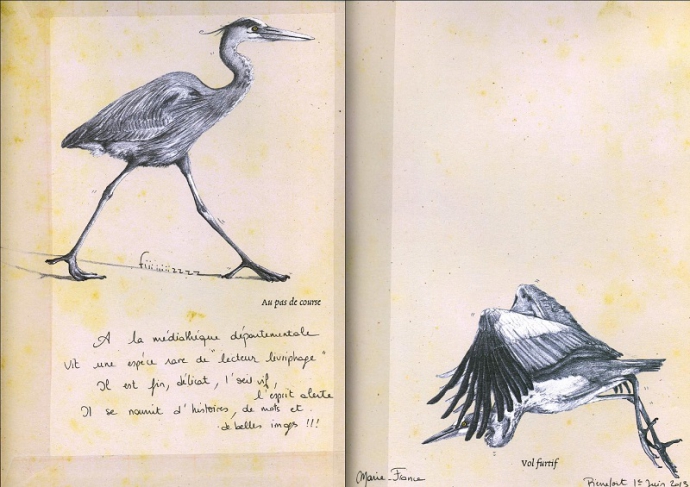 fiiiiiiizzzz
Au pas de course
A la médiathèque départementale
Vit une espèce rare de "lecteur livriphage"
Il est fin, délicat, l'œil vif,
l'esprit alerte
Il se nourrit d'histoires, de mots et
de belles images !!!
Vol furtif
Marie-France
Pierrefort 1er Juin 2013